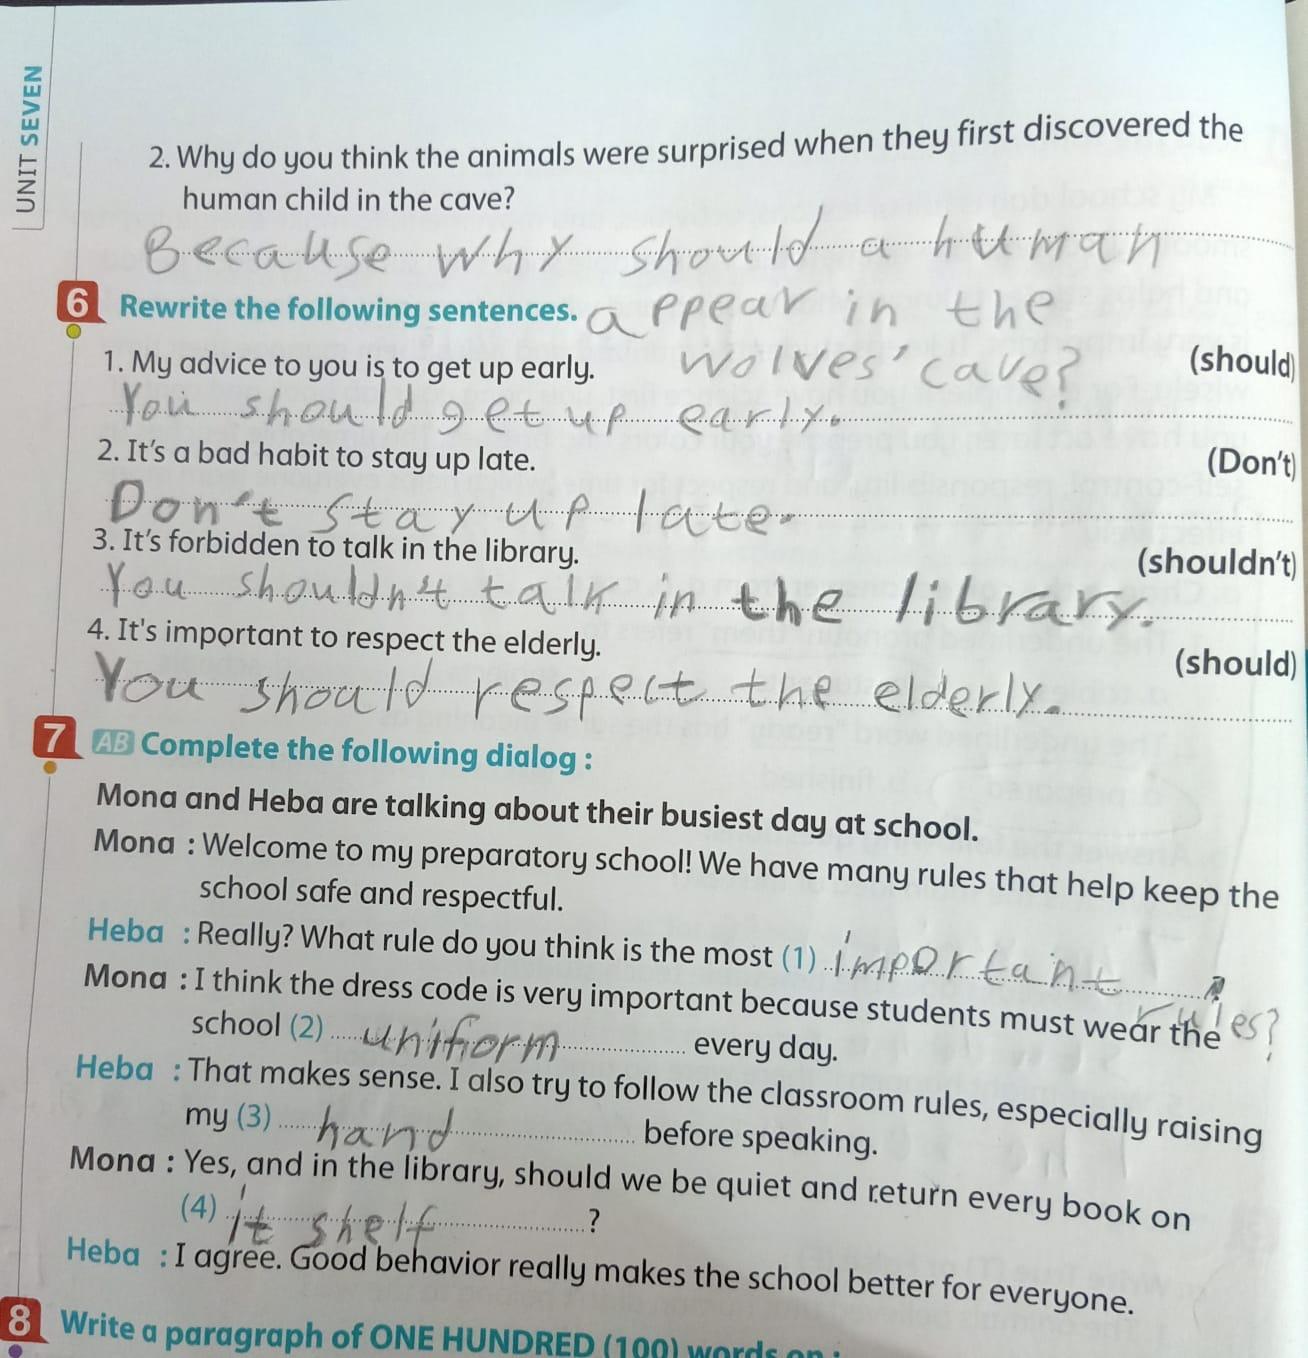 UNIT SEVEN
2. Why do you think the animals were surprised when they first discovered the
human child in the cave?
Because why should a human
appear in the
wolves' cave?
6 Rewrite the following sentences.
1. My advice to you is to get up early. (should)
You should get up early.
2. It's a bad habit to stay up late. (Don't)
Don't stay up late.
3. It's forbidden to talk in the library. (shouldn't)
You shouldn't talk in the library.
4. It's important to respect the elderly. (should)
You should respect the elderly.
7 AB Complete the following dialog :
Mona and Heba are talking about their busiest day at school.
Mona : Welcome to my preparatory school! We have many rules that help keep the
school safe and respectful.
Heba : Really? What rule do you think is the most (1) important
rules?
Mona : I think the dress code is very important because students must wear the
school (2) uniform every day.
Heba : That makes sense. I also try to follow the classroom rules, especially raising
my (3) hand before speaking.
Mona : Yes, and in the library, should we be quiet and return every book on
(4) it shelf ?
Heba : I agree. Good behavior really makes the school better for everyone.
8 Write a paragraph of ONE HUNDRED (100) words on :